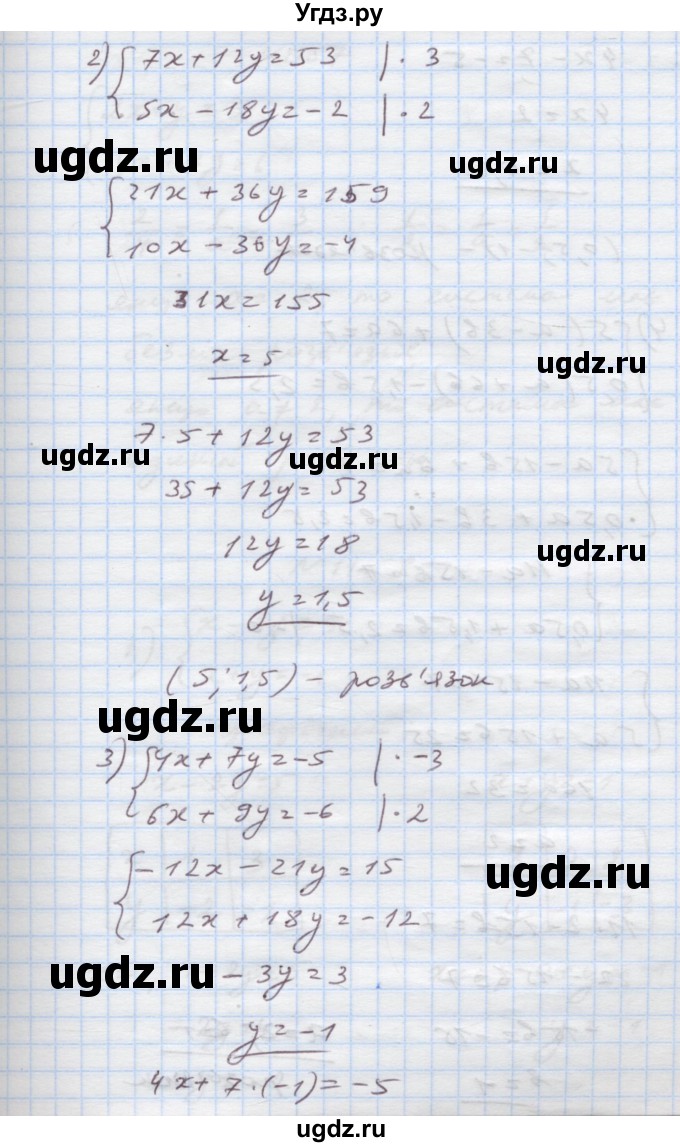 Угдз.ру
2) { 7x + 12y = 53 | · 3
5x - 18y = -2 | · 2
ugdz.ru
ugdz.ru
{ 21x + 36y = 159
10x - 36y = -4
31x = 155
x = 5
ugdz.ru
7 · 5 + 12y = 53
ugdz.ru
ugdz.ru
35 + 12y = 53
12y = 18
ugdz.ru
y = 1,5
(5; 1,5) - розв'язок
ugdz.ru
3) { 4x + 7y = -5 | · -3
6x + 9y = -6 | · 2
{ -12x - 21y = 15
ugdz.ru
12x + 18y = -12
ugdz.ru
-3y = 3
y = -1
4x + 7 · (-1) = -5